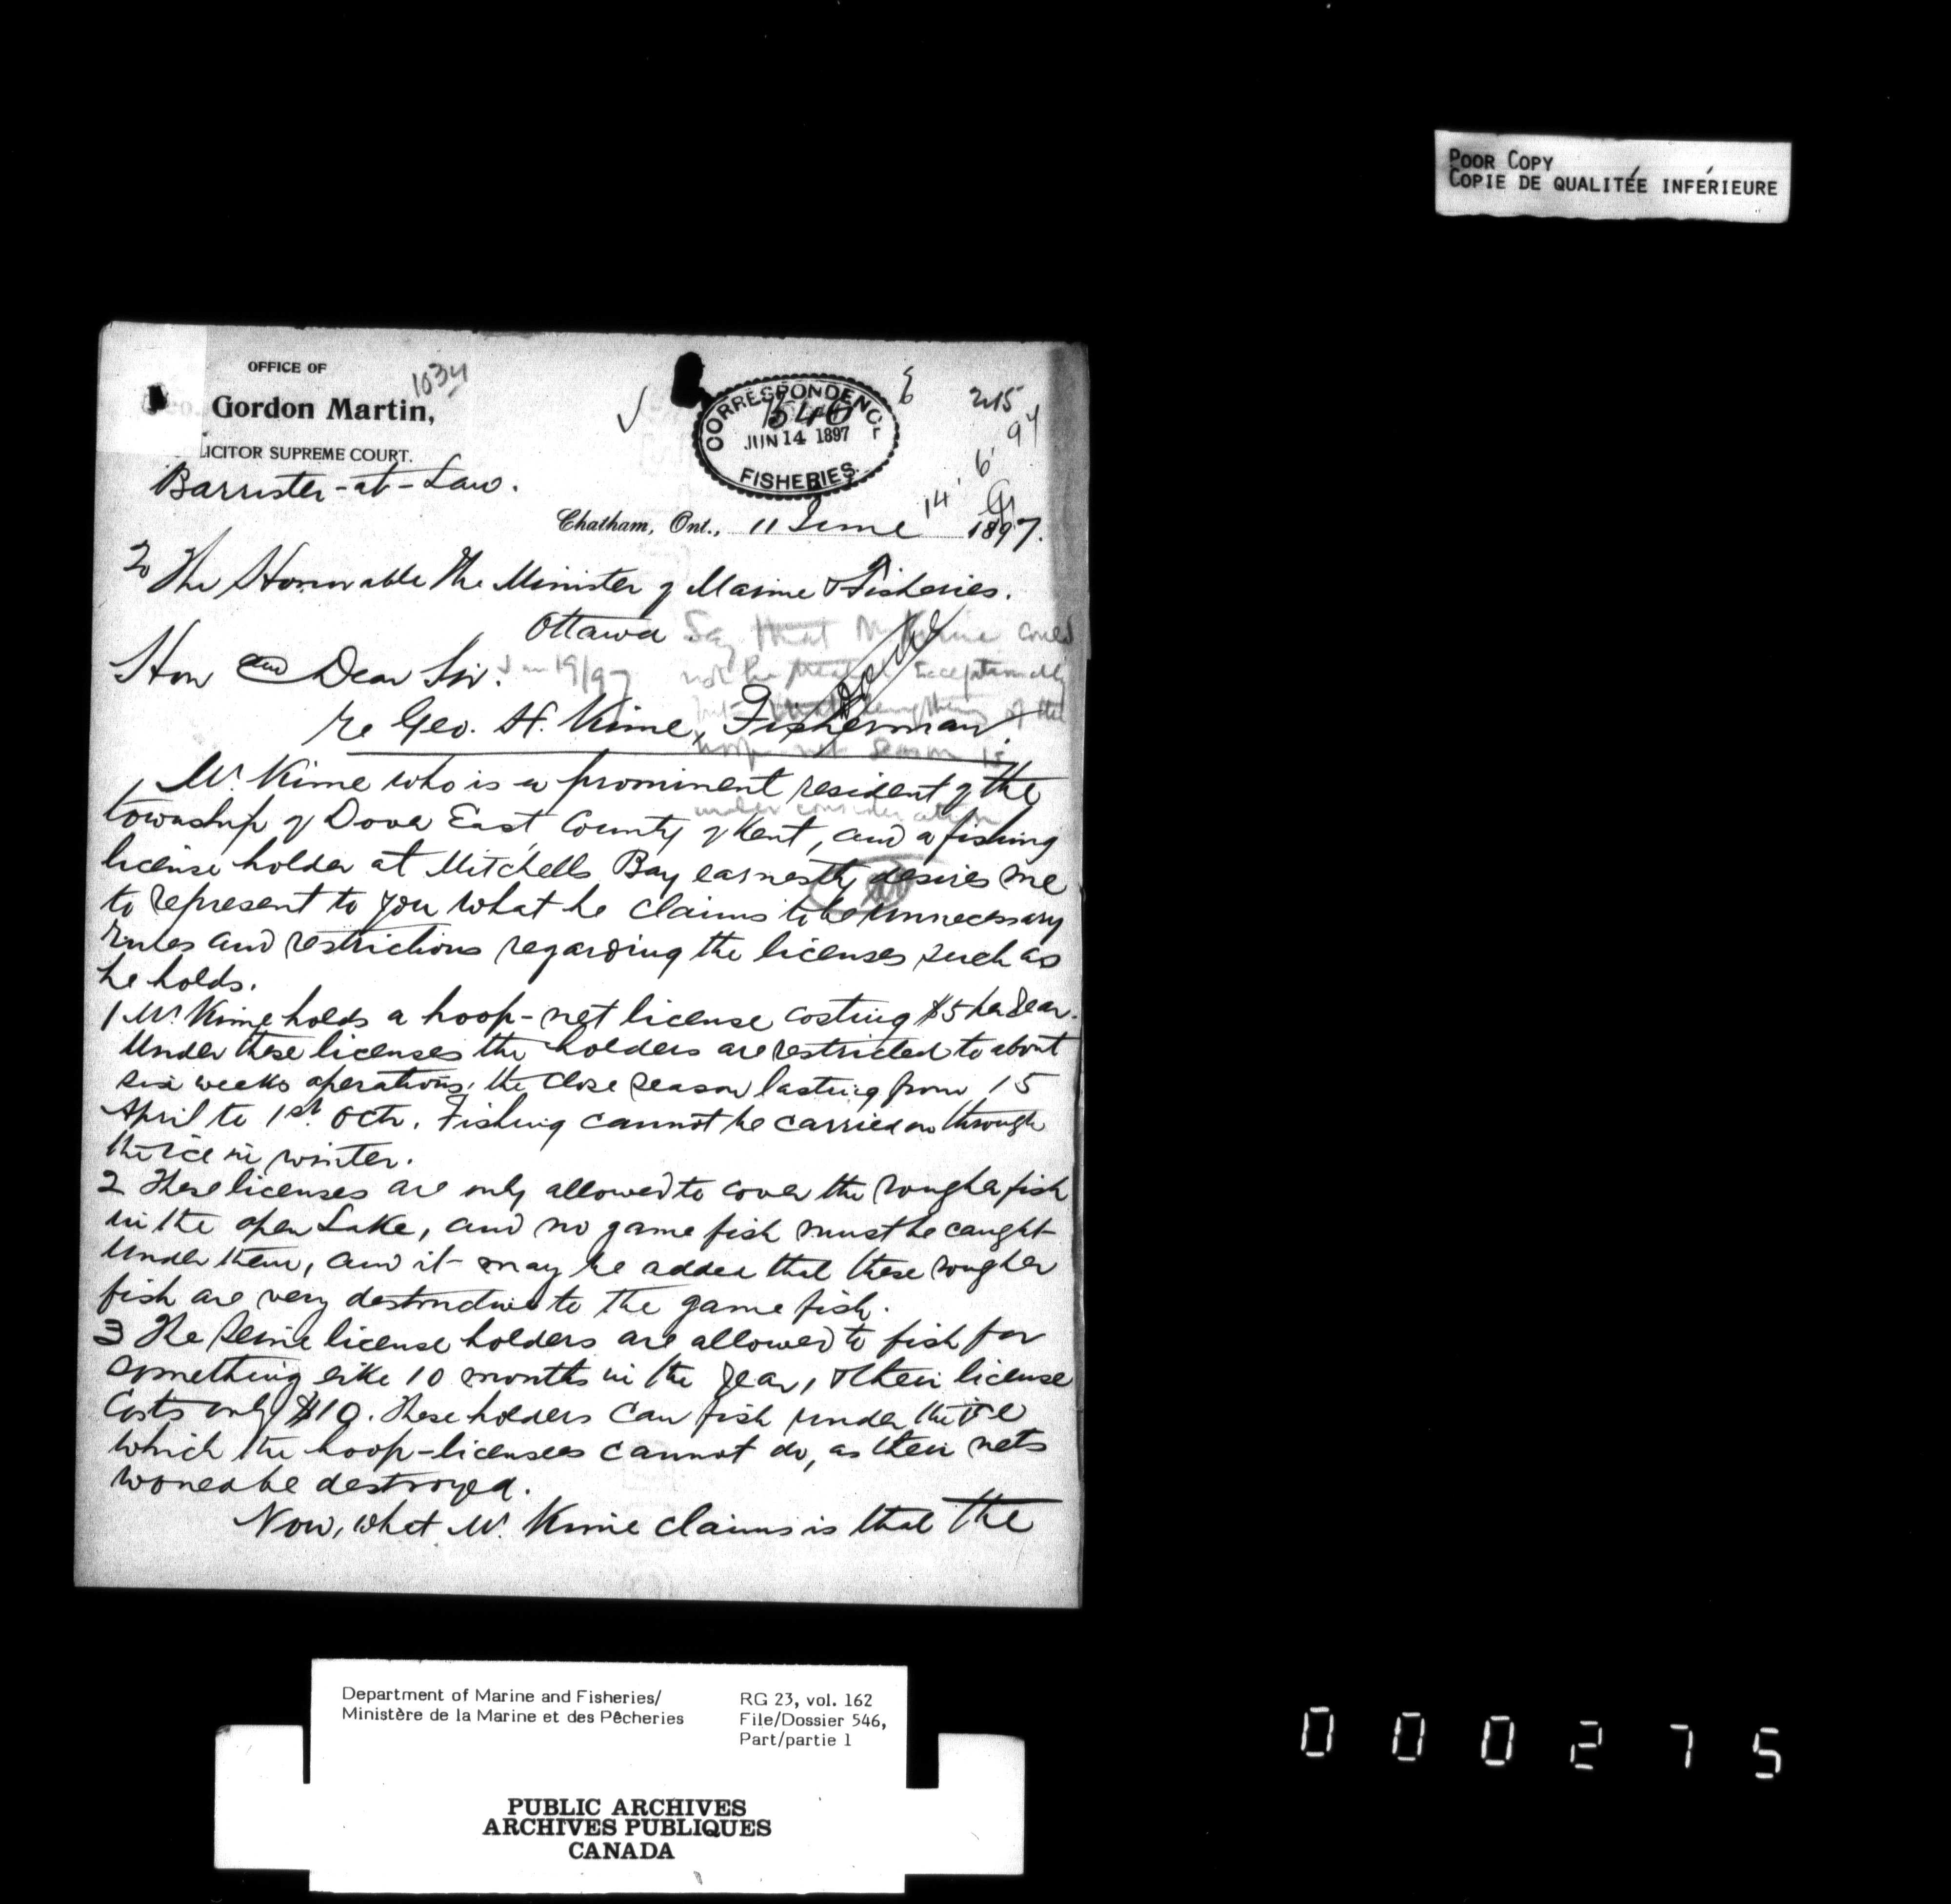 POOR COPY
COPIE DE QUALITÉE INFÉRIEURE
OFFICE OF
1034
Gordon Martin,
ICITOR SUPREME COURT.
Barrister-at-Law.
CORRESPONDENCE
546
JUN 14 1897
FISHERIES.
215
97
6
14
Chatham, Ont., 11 June 1897.
To The Honorable The Minister of Marine & Fisheries.
Ottawa
Say that Mr Kime could
not be exceptionally
but lengthening of the
hoop net season is
under consideration
Hon and Dear Sir.
Jun 19/97
re Geo. H. Kime, Fisherman.
Mr Kime who is a prominent resident of the
township of Dover East, County of Kent, and a fishing
license holder at Mitchells Bay earnestly desires me
to represent to you what he claims to be unnecessary
rules and restrictions regarding the licenses such as
he holds.
1 Mr Kime holds a hoop-net license costing $5 per Year.
Under these licenses the holders are restricted to about
six weeks operations, the close season lasting from 15
April to 1st Octr. Fishing cannot be carried on through
the ice in winter.
2 These licenses are only allowed to cover the rougher fish
in the open Lake, and no game fish must be caught
under them, and it may be added that these rougher
fish are very destructive to the game fish.
3 The Seine license holders are allowed to fish for
something like 10 months in the Year, & their license
Costs only $10. These holders can fish under the ice
which the hoop-licensees cannot do, as their nets
would be destroyed.
Now, what Mr Kime claims is that the
Department of Marine and Fisheries/
Ministère de la Marine et des Pêcheries
RG 23, vol. 162
File/Dossier 546,
Part/partie 1
PUBLIC ARCHIVES
ARCHIVES PUBLIQUES
CANADA
000275